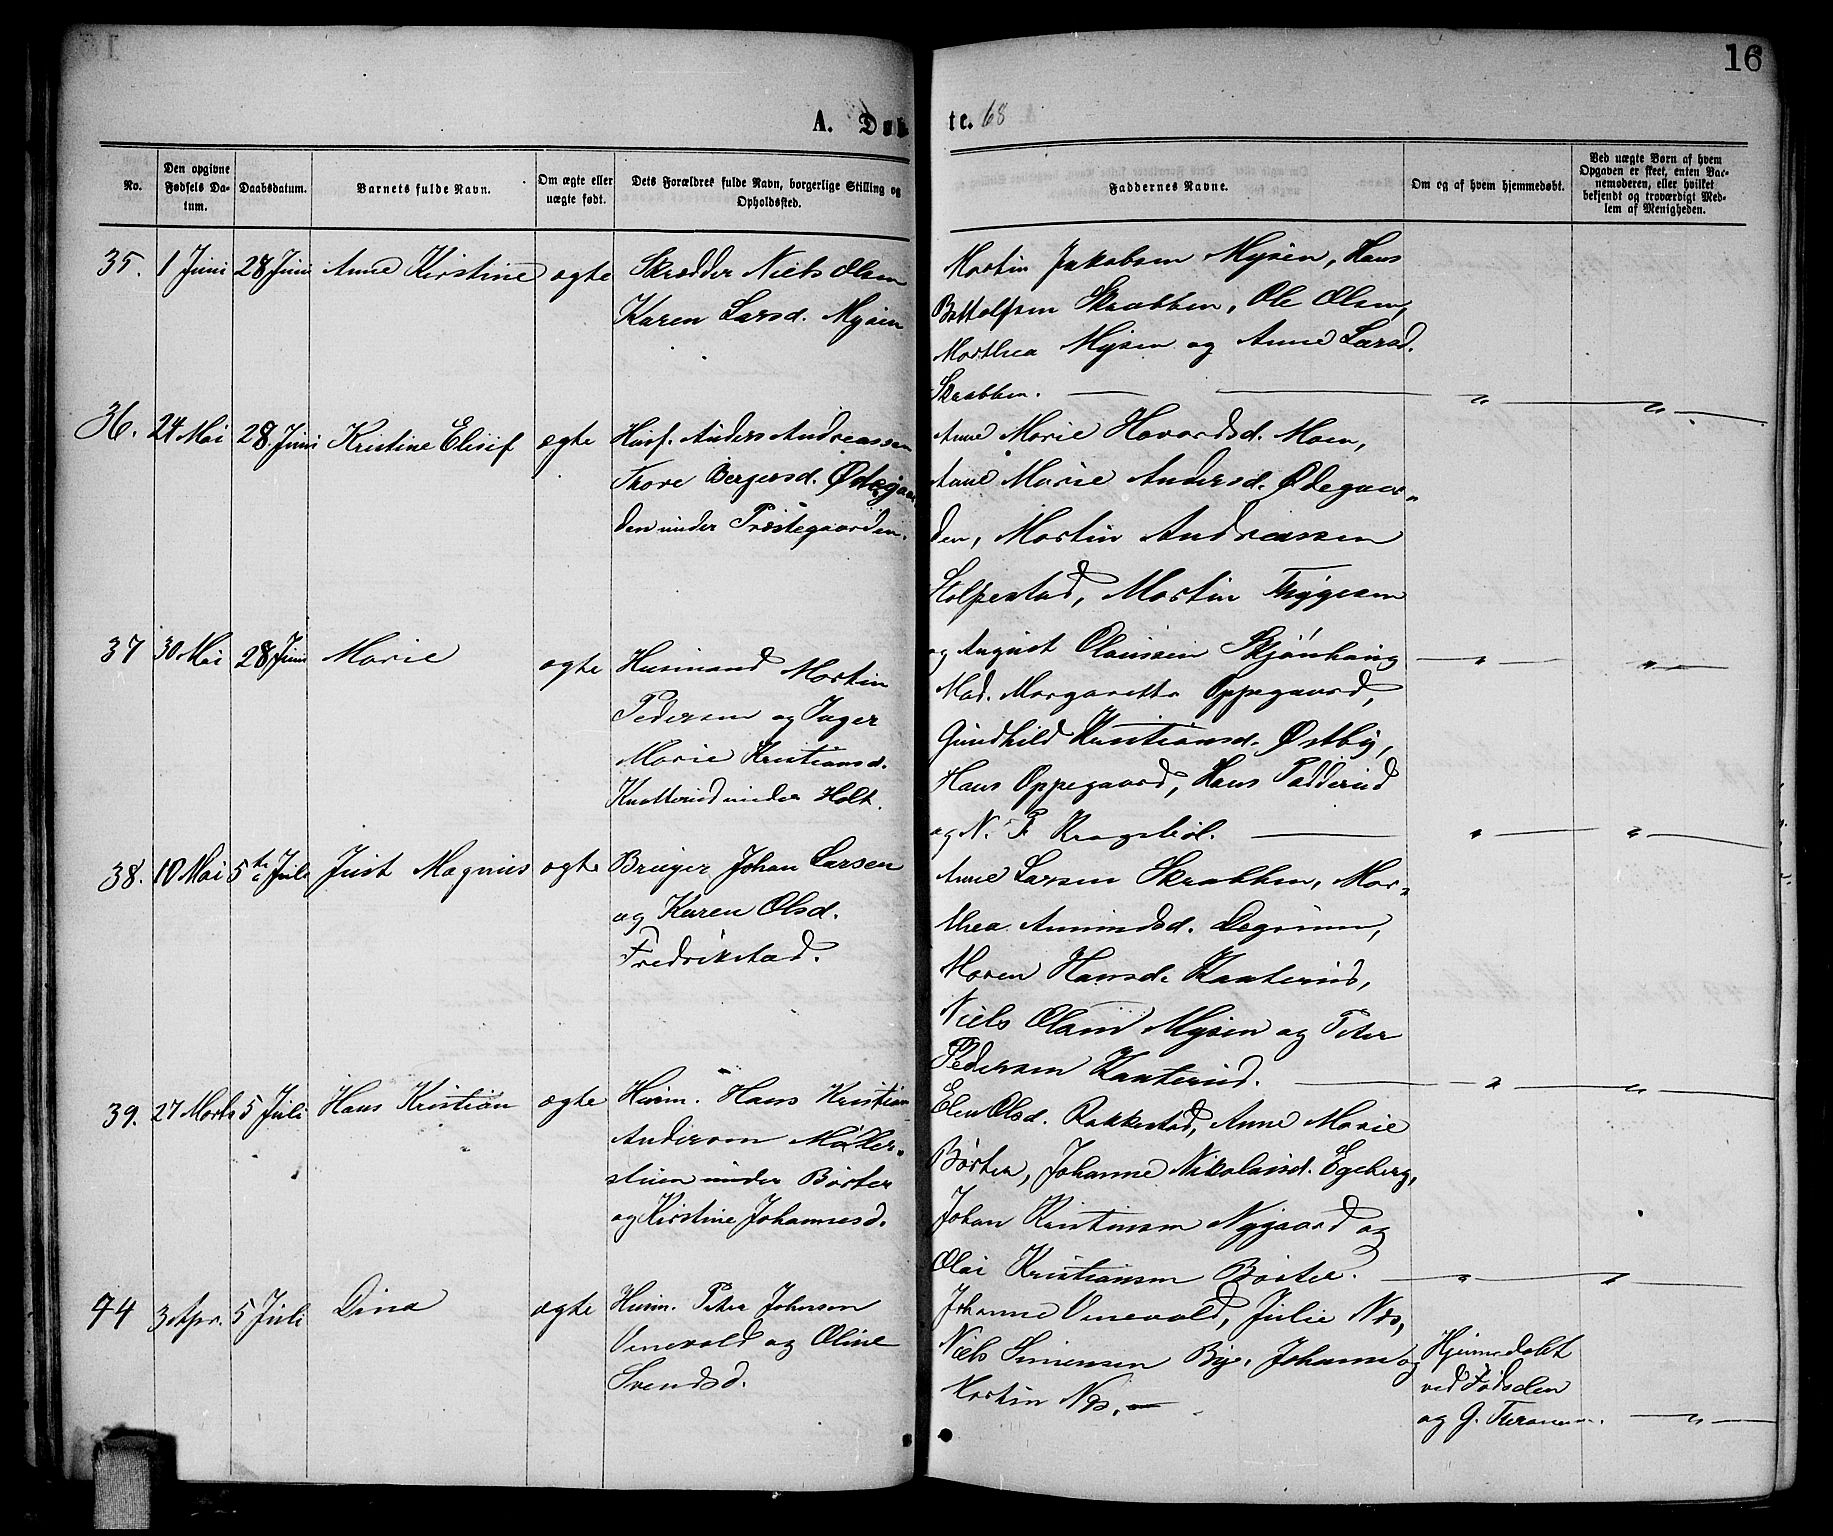 16
A. Døbte. 68
No.
Den opgivne Fødsels Datum.
Daabsdatum.
Barnets fulde Navn.
Om ægte eller uægte født.
Dets Forældres fulde Navn, borgerlige Stilling og Opholdssted.
Faddernes Navne.
Om og af hvem hjemmedøbt.
Ved uægte Børn af hvem Opgaven er skeet, enten Barnemoderen, eller hvilket bekjendt og troværdigt Medlem af Menigheden.
35. 1 Juni 28 Juni Anne Kirstine ægte
Skrædder Niels Olsen
Karen Larsd. Mysen
Martin Jakobsen Mysen, Hans
Bottolfsen Skrabben, Ole Olsen,
Marthea Mysen og Anne Larsd.
Skrabben. — — " — — " —
36. 24 Mai 28 Juni Kristine Elisif ægte
Husf. Anders Andreassen
Thore Bergersd. Ødegaar
den under Præstegaarden.
Anne Marie Havardsd. Moen,
Anne Marie Andersd. Ødegaar-
den, Martin Andreassen
Stolpestad, Martin Thygesen
og August Olaussen Skjønhaug — " — — " —
37 30 Mai 28 Juni Marie ægte
Husmand Martin
Pedersen og Inger
Marie Kristiansd.
Knatterud under Holt.
Mad. Margarette Oppegaard,
Gundhild Kristiansd. Østby,
Hans Oppegaard, Hans Padderud
og N. F. Kragstøl. — " — — " —
38. 10 Mai 5te Juli Just Magnus ægte
Bruger Johan Larsen
og Karen Olsd.
Fredrikstad.
Anne Larsen Skrabben, Mar-
thea Amundsd. Degrum,
Maren Hansd. Kaaterud,
Niels Olsen Mysen og Peter
Pedersen Kaaterud. — " — — " —
39. 27 Marts 5 Juli Hans Kristian ægte
Husm. Hans Kristian
Andersen
stuen under Børter
og Kirstine Johannesd.
Elen Olsd. Rakkestad, Anne Marie
Børter, Johanne Nikolaisd. Egeberg,
Johan Kristiansen Nygaard og
Olai Kristiansen Børter. — " — — " —
44 3 Apr. 5 Juli Dina ægte
Husm. Peter Johnsen
Venevold og Oline
Svendsd.
Johanne Venevold, Julie Næs,
Niels Simensen Bye, Johanne og
Martin Næs. —
Hjemmedøbt
ved Fødselen
og G.
— " —